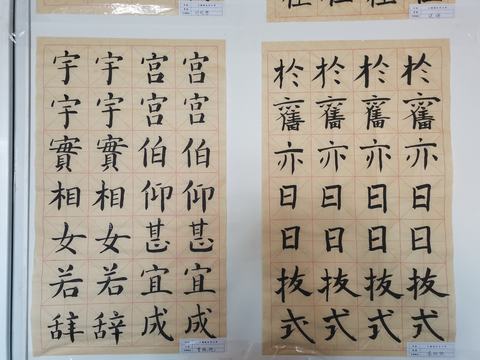 宇宇宮宮
字字宮宮
實實伯伯
相相仰仰
女女甚甚
若若宜宜
辞辞成成
於於於於
亦亦亦亦
日日日日
日日日日
拔拔拔拔
式式式式